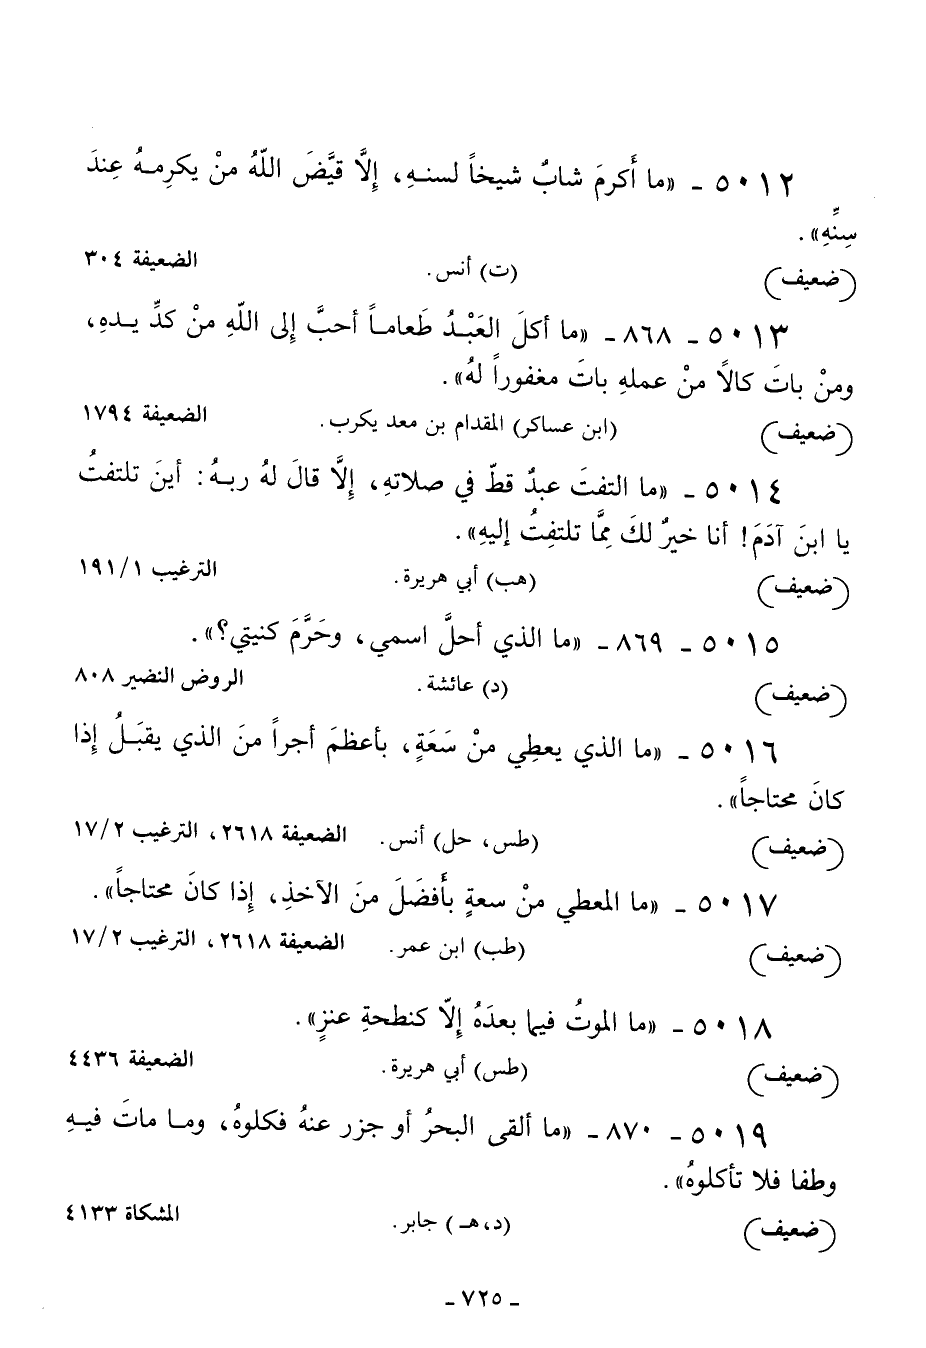 ٥٠١٢ ـ «ما أَكرمَ شابٌ شيخاً لسنـهِ، إِلَّا قيَّضَ اللّهُ منْ يكرِمـهُ عِندَ
سِنِّهِ».
(ضعيف) (ت) أنس. الضعيفة ٣٠٤
٥٠١٣ ـ ٨٦٨ ـ «ما أكلَ العَبْـدُ طَعامـاً أحبَّ إِلى اللّهِ منْ كدِّ يـدهِ،
ومنْ باتَ كالاً منْ عملهِ باتَ مغفوراً لهُ».
(ضعيف) (ابن عساكر) المقدام بن معد يكرب. الضعيفة ١٧٩٤
٥٠١٤ ـ «ما التفتَ عبدٌ قطّ في صلاتهِ، إِلَّا قالَ لهُ ربـهُ: أينَ تلتفتُ
يا ابنَ آدَمَ! أنا خيرٌ لكَ مِمَّا تلتفِتُ إليهِ».
(ضعيف) (هب) أبي هريرة. الترغيب ١٩١/١
٥٠١٥ ـ ٨٦٩ ـ «ما الذي أحلَّ اسمي، وحَرَّمَ كنيتي؟».
(ضعيف) (د) عائشة. الروض النضير ٨٠٨
٥٠١٦ ـ «ما الذي يعطِي منْ سَعَةٍ، بأعظمَ أجراً منَ الذي يقبَـلُ إِذا
كانَ محتاجاً».
(ضعيف) (طس، حل) أنس. الضعيفة ٢٦١٨، الترغيب ١٧/٢
٥٠١٧ ـ «ما المعطي منْ سعةٍ بأَفضَلَ منَ الآخذِ، إِذا كانَ محتاجاً».
(ضعيف) (طب) ابن عمر. الضعيفة ٢٦١٨، الترغيب ١٧/٢
٥٠١٨ ـ «ما الموتُ فيما بعدَهُ إِلّا كنطحةِ عنزٍ».
(ضعيف) (طس) أبي هريرة. الضعيفة ٤٤٣٦
٥٠١٩ ـ ٨٧٠ ـ «ما ألقى البحرُ أو جزر عنهُ فكلوهُ، ومـا ماتَ فيـهِ
وطفا فلا تأكلوهُ».
(ضعيف) (د، هـ) جابر. المشكاة ٤١٣٣
ـ ٧٢٥ ـ